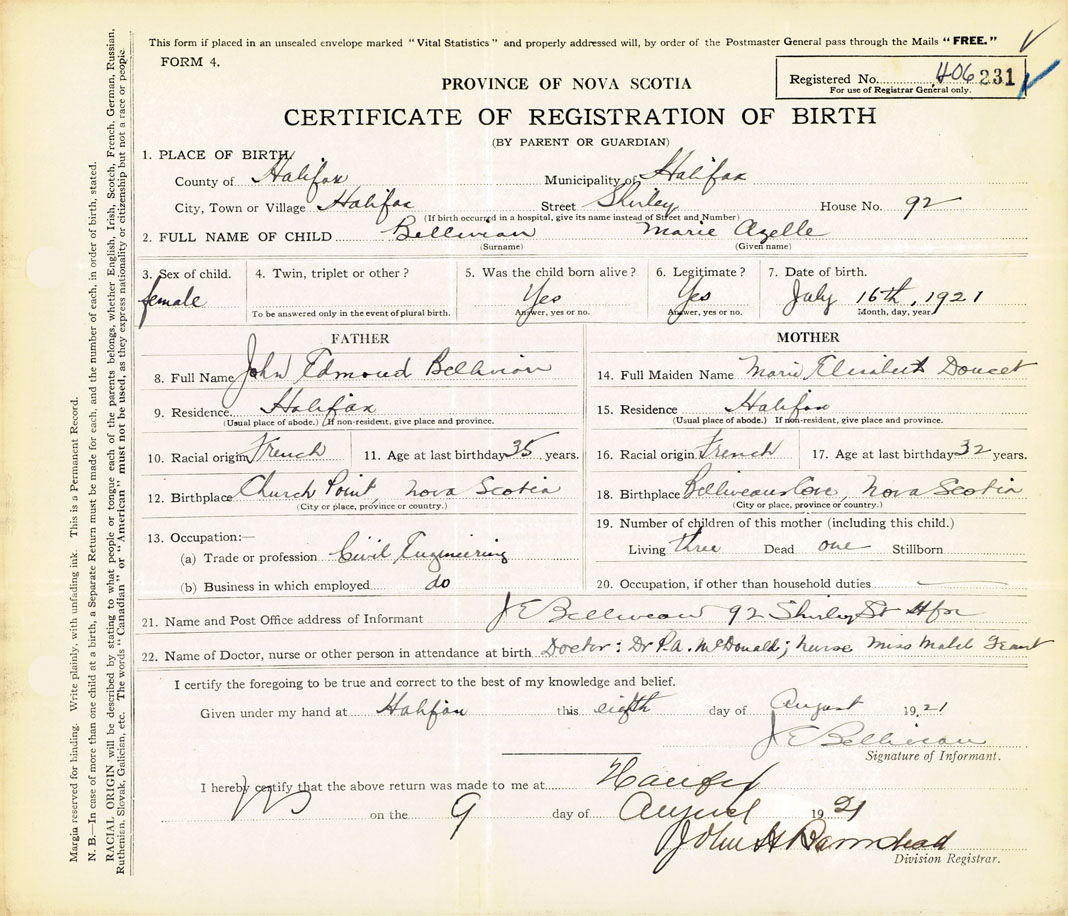 This form if placed in an unsealed envelope marked "Vital Statistics" and properly addressed will, by order of the Postmaster General pass through the Mails "FREE."
FORM 4.
Registered No. 406 231
For use of Registrar General only.
PROVINCE OF NOVA SCOTIA
CERTIFICATE OF REGISTRATION OF BIRTH
(BY PARENT OR GUARDIAN)
1. PLACE OF BIRTH
County of Halifax Municipality of Halifax
City, Town or Village Halifax Street Shirley House No. 92
(If birth occurred in a hospital, give its name instead of Street and Number)
2. FULL NAME OF CHILD Belliveau Marie Azelle
(Surname) (Given name)
3. Sex of child. 4. Twin, triplet or other? 5. Was the child born alive? 6. Legitimate? 7. Date of birth.
female Yes Yes July 16th, 1921
To be answered only in the event of plural birth. Answer, yes or no. Answer, yes or no. Month, day, year
FATHER
8. Full Name John Edmond Belliveau
9. Residence Halifax
(Usual place of abode.) If non-resident, give place and province.
10. Racial origin French 11. Age at last birthday 35 years.
12. Birthplace Church Point, Nova Scotia
(City or place, province or country.)
13. Occupation:—
(a) Trade or profession Civil Engineering
(b) Business in which employed do
MOTHER
14. Full Maiden Name Marie Elisabeth Doucet
15. Residence Halifax
(Usual place of abode.) If non-resident, give place and province.
16. Racial origin French 17. Age at last birthday 32 years.
18. Birthplace Belliveaus Cove, Nova Scotia
(City or place, province or country.)
19. Number of children of this mother (including this child.)
Living three Dead one Stillborn
20. Occupation, if other than household duties
21. Name and Post Office address of Informant J E Belliveau 92 Shirley St Hfx
22. Name of Doctor, nurse or other person in attendance at birth Doctor: Dr P.A. McDonald; nurse Miss Mabel Grant
I certify the foregoing to be true and correct to the best of my knowledge and belief.
Given under my hand at Halifax this eighth day of August 1921
J E Belliveau
Signature of Informant.
I hereby certify that the above return was made to me at Halifax
on the 9 day of August 1921
John H Barnstead
Division Registrar.
Margin reserved for binding. Write plainly, with unfading ink. This is a Permanent Record.
N. B.—In case of more than one child at a birth, a Separate Return must be made for each, and the number of each, in order of birth, stated.
RACIAL ORIGIN will be described by stating to what people or tongue each of the parents belongs, whether English, Irish, Scotch, French, German, Russian,
Ruthenian, Slovak, Galician, etc. The words "Canadian" or "American" must not be used, as they express nationality or citizenship but not a race or people.